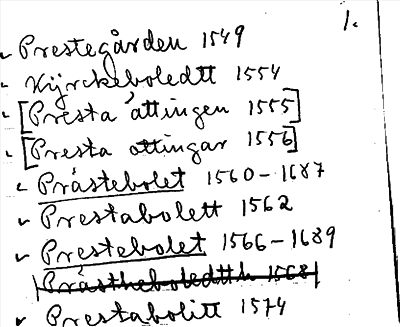 1.
Prestegården 1549
Kyrckeboledtt 1554
[Presta attingen 1555]
[Presta attingar 1556]
Prästebolet 1560-1687
Prestabolett 1562
Prestebolet 1566-1689
Prästheboledtth 1568
Prestabolitt 1574